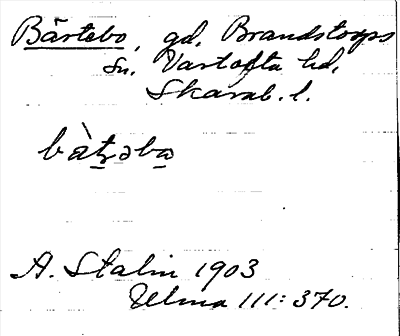 Bärtebo, gd. Brandstorps
sn. Vartofta hd,
Skarab. l.
bàt̠əbo̠
A. Stalin 1903
Ulma 111: 370.